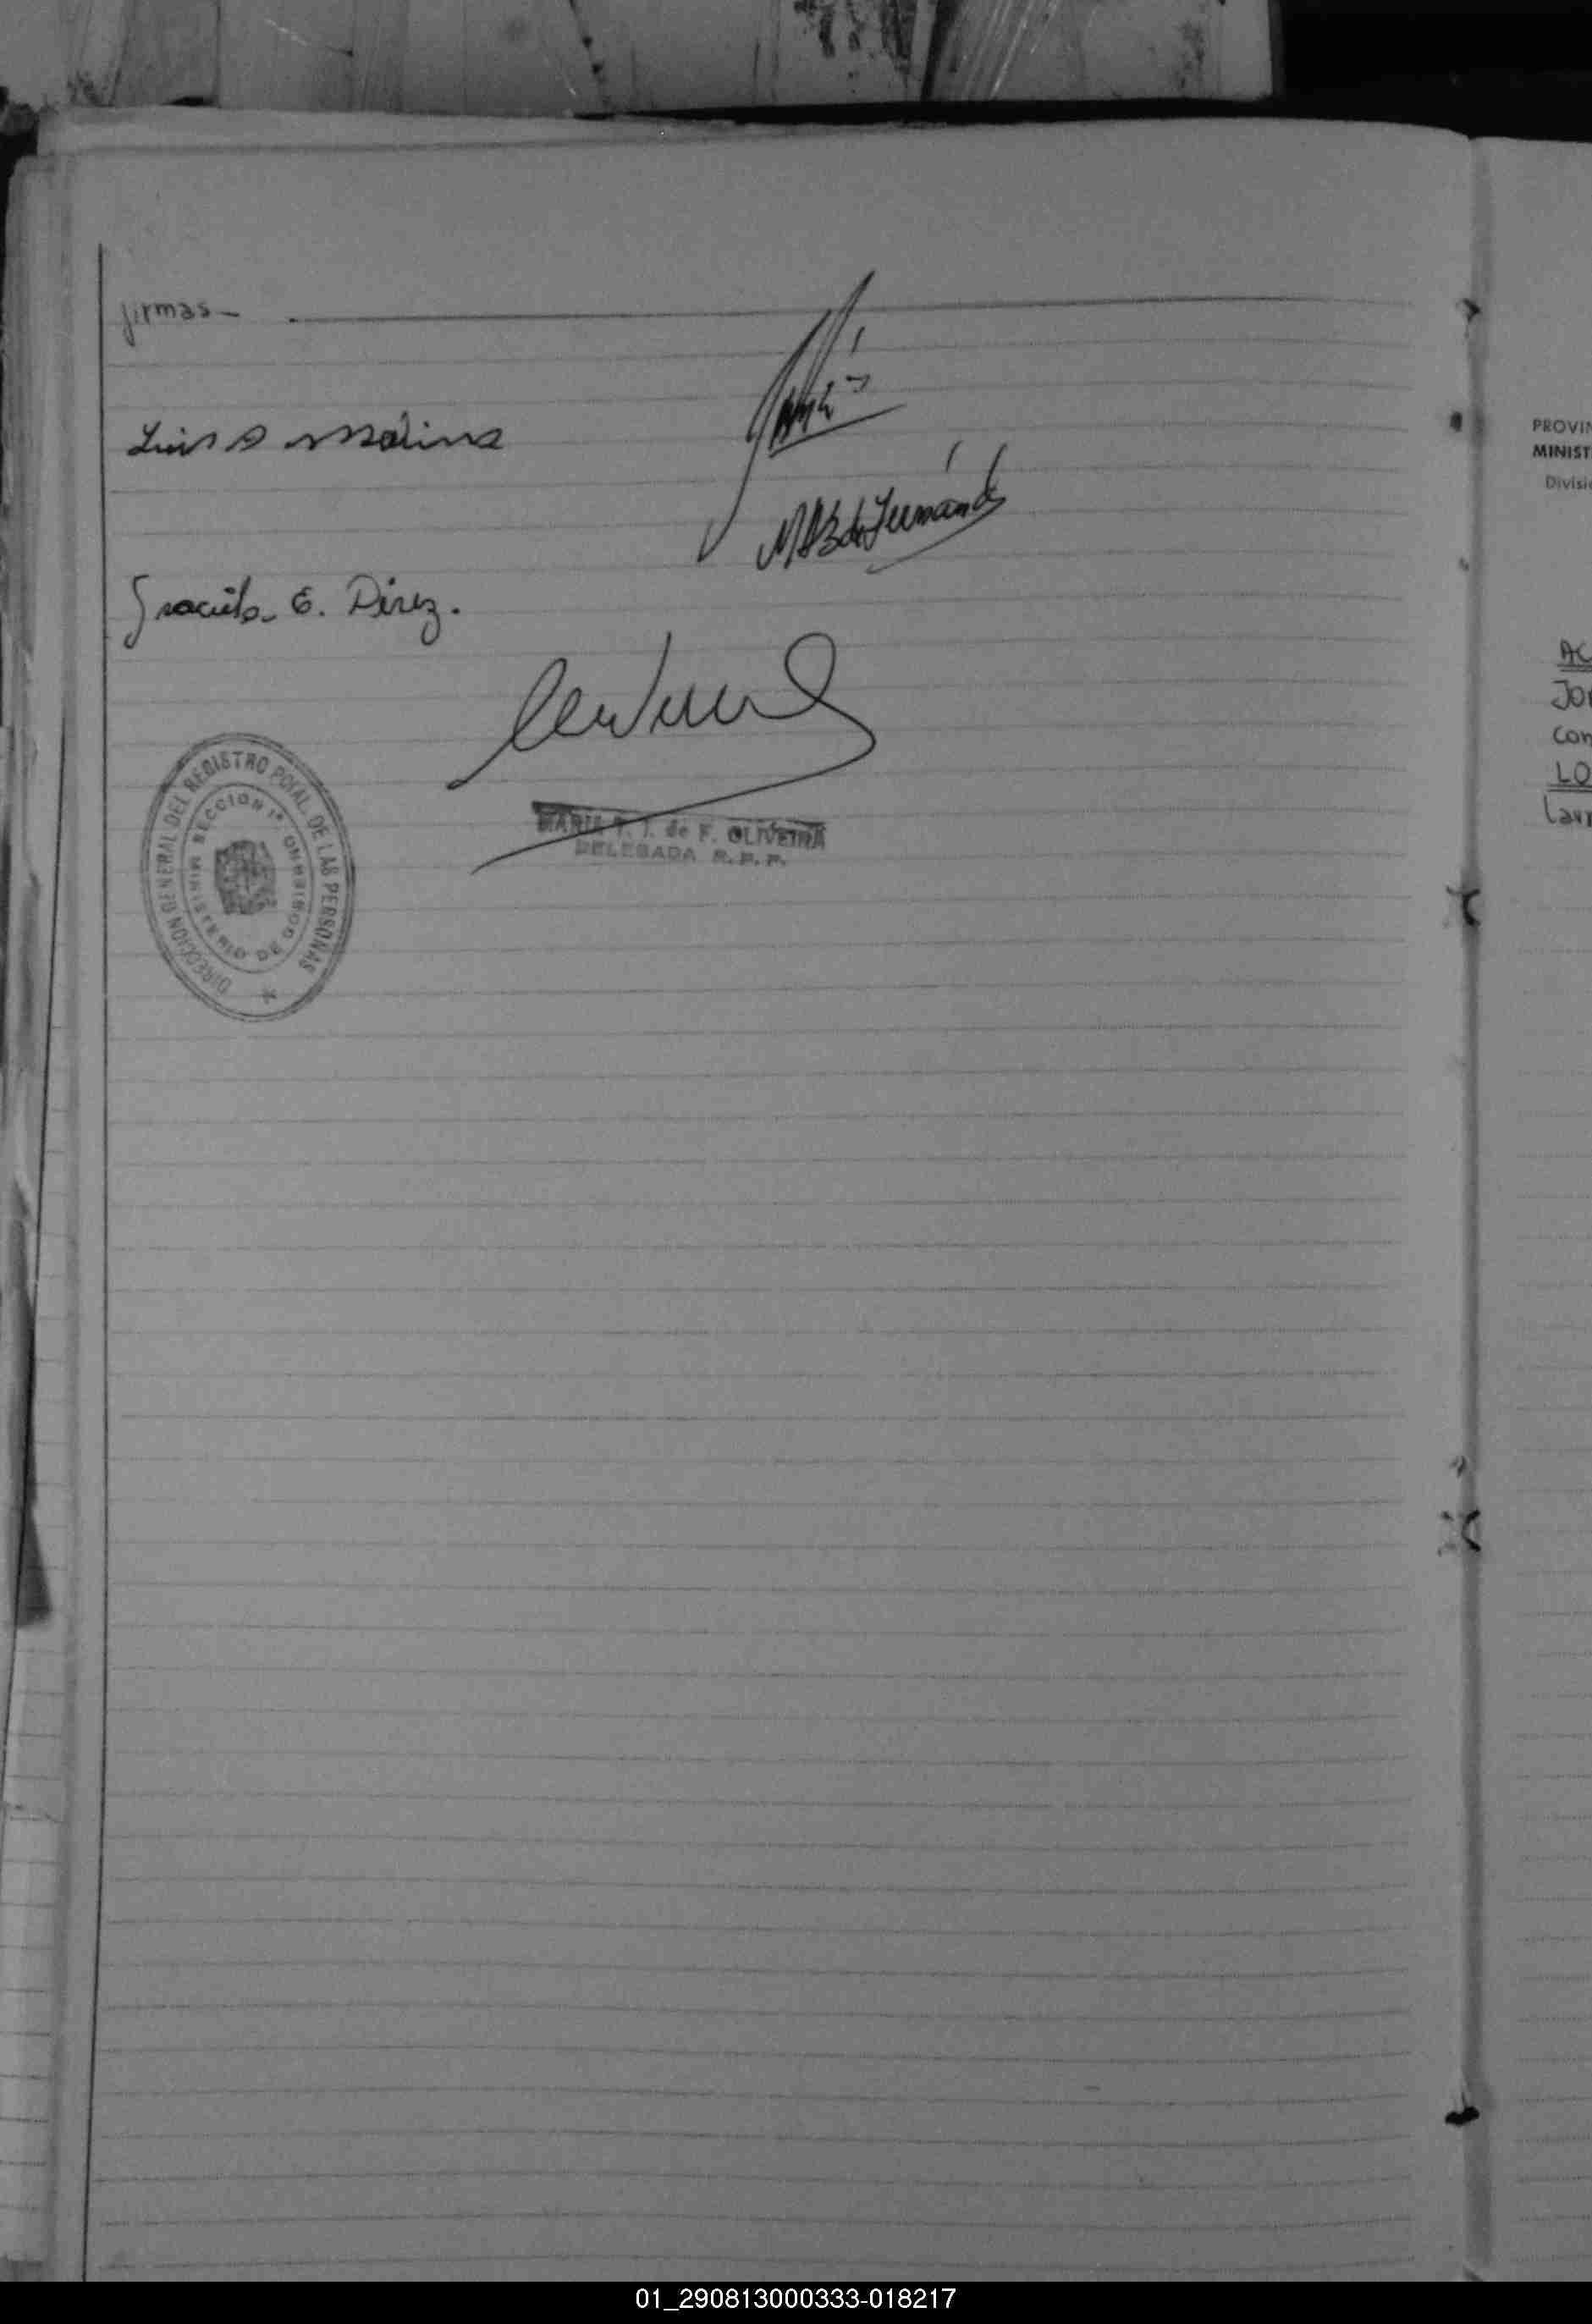 firmas-
Luis A Molina
M A B de Fernández
Graciela E. Pérez.
DIRECCION GENERAL DEL REGISTRO PCIAL. DE LAS PERSONAS
SECCION 1ª
MINISTERIO DE GOBIERNO
MARIA de F. OLIVEIRA
DELEGADA R.P.P.
PROVIN
MINIST
Divisi
AC
Jor
con
LO
Laur
01_290813000333-018217